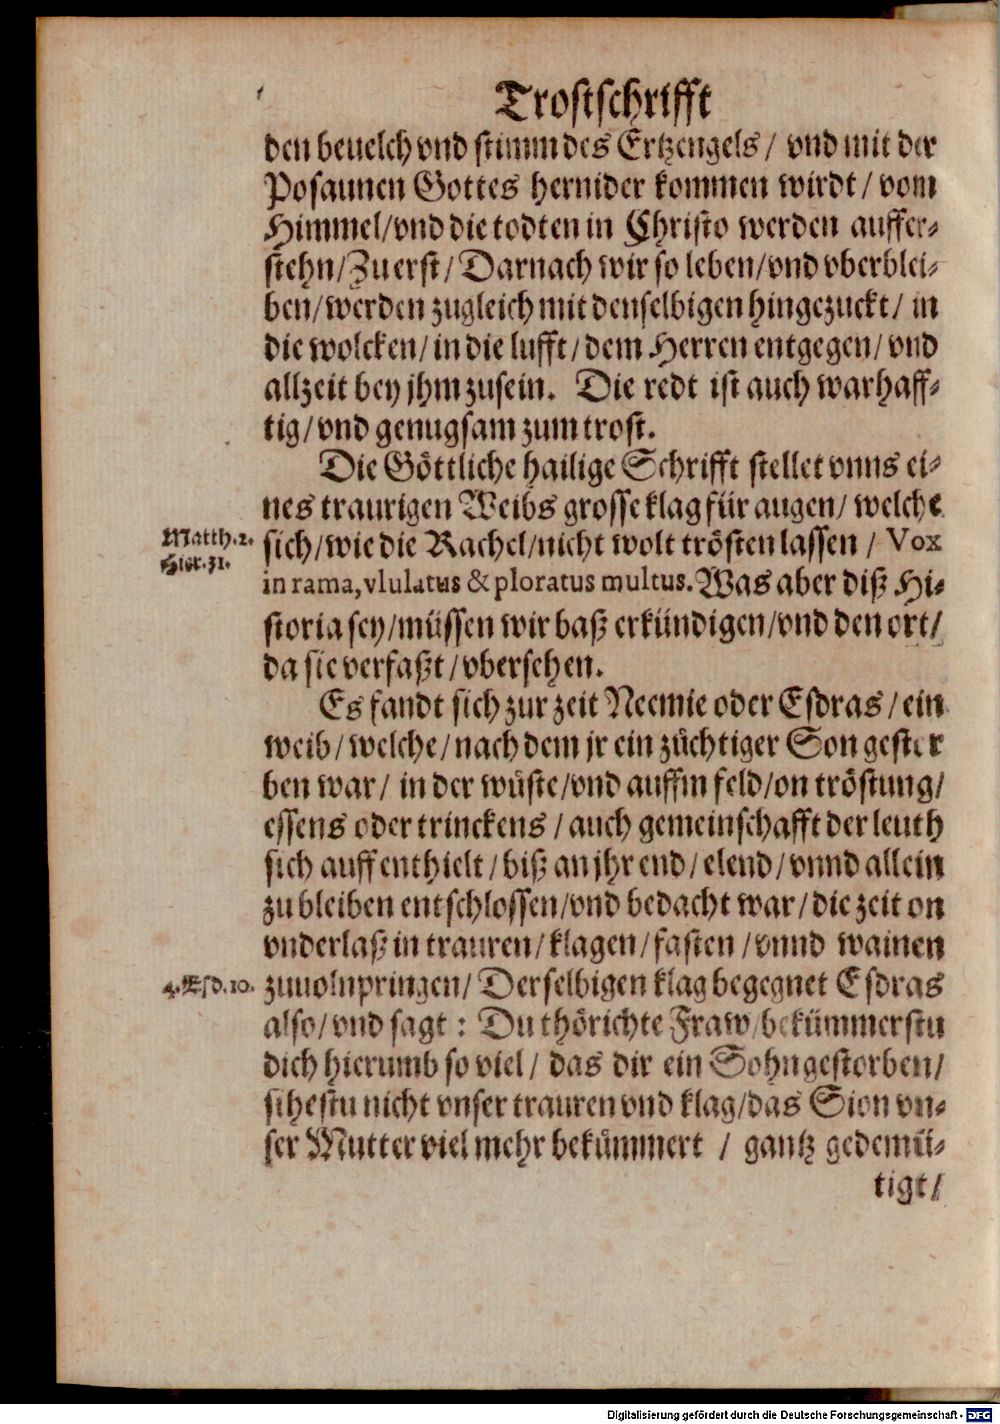 Trostschrifft
den beuelch vnd stimm des Ertzengels / vnd mit der
Posaunen Gottes hernider kommen wirdt / vom
Himmel/vnd die todten in Christo werden auffer-
stehn/Zu erst/ Darnach wir so leben/vnd vberblei-
ben/werden zugleich mit denselbigen hingezuckt/ in
die wolcken/ in die lufft/ dem Herren entgegen/ vnd
allzeit bey jhm zusein. Die redt ist auch warhaff-
tig/vnd genugsam zum trost.
Die Göttliche hailige Schrifft stellet vnns ei-
nes traurigen Weibs grosse klag für augen/ welche
Matth.2. sich/wie die Rachel/nicht wolt trösten lassen / Vox
Hier.31. in rama, vlulatus & ploratus multus. Was aber diß Hi-
storia sey/müssen wir baß erkündigen/vnd den ort/
da sie verfaßt /vbersehen.
Es fandt sich zur zeit Neemie oder Esdras / ein
weib/welche/nach dem jr ein züchtiger Son gestor
ben war/ in der wüste/vnd auffm feld/on tröstung/
essens oder trinckens / auch gemeinschafft der leuth
sich auffenthielt / biß an jhr end/ elend/ vnnd allein
zu bleiben entschlossen/vnd bedacht war/die zeit on
vnderlaß in trauren/klagen/fasten /vnnd wainen
4.Esd.10. zuuolnpringen/ Derselbigen klag begegnet Esdras
also/vnd sagt : Du thörichte Fraw/bekümmerstu
dich hierumb so viel/ das dir ein Sohn gestorben/
sihestu nicht vnser trauren vnd klag/das Sion vn-
ser Mutter viel mehr bekümmert / gantz gedemü-
tigt/
Digitalisierung gefördert durch die Deutsche Forschungsgemeinschaft - DFG